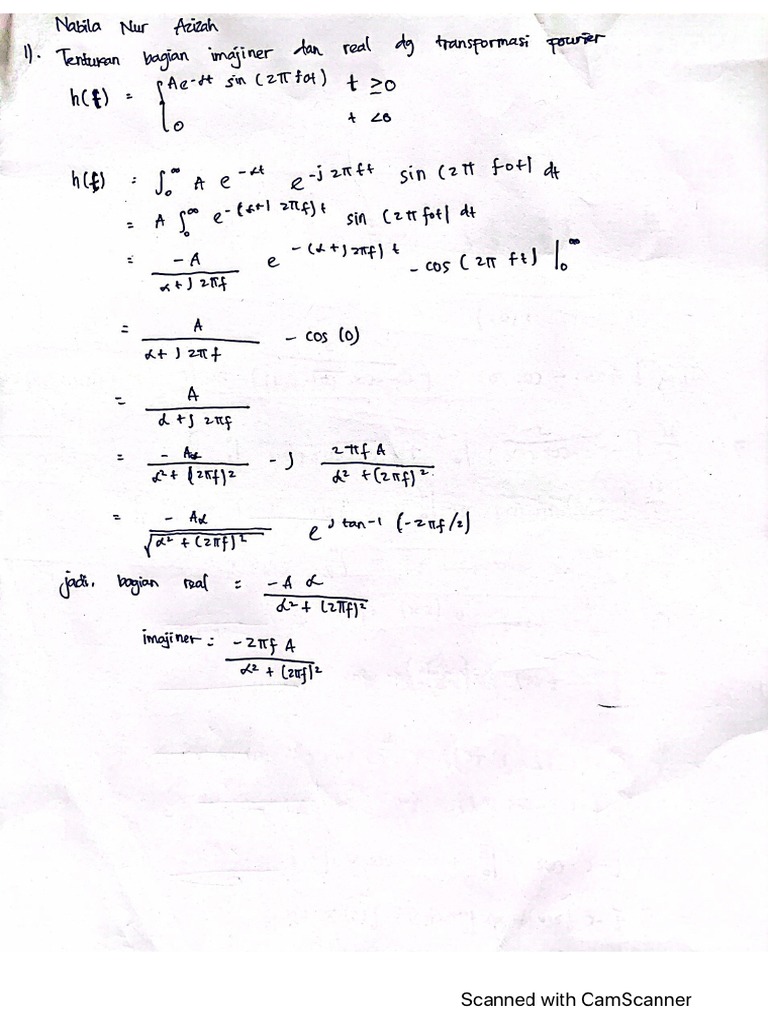 Nabila Nur Azizah
1). Tentukan bagian imajiner dan real dg transformasi fourier
h(t) = { Ae-αt sin (2π fot) t ≥0
0 t <0
h(f) = ∫₀^∞ A e^-αt e^-j 2πft sin (2π fot) dt
= A ∫₀^∞ e^-(α+j 2πf)t sin (2π fot) dt
= -A / α+j 2πf e^-(α+j2πf)t - cos (2π ft) |₀^∞
= A / α+j 2πf - cos (0)
= A / α+j 2πf
= - Aα / α²+(2πf)² - j 2πf A / α²+(2πf)²
= - Aα / √α²+(2πf)² e^j tan-1 (-2πf/2)
jadi, bagian real = -A α / α²+(2πf)²
imajiner = -2πf A / α²+(2πf)²
Scanned with CamScanner